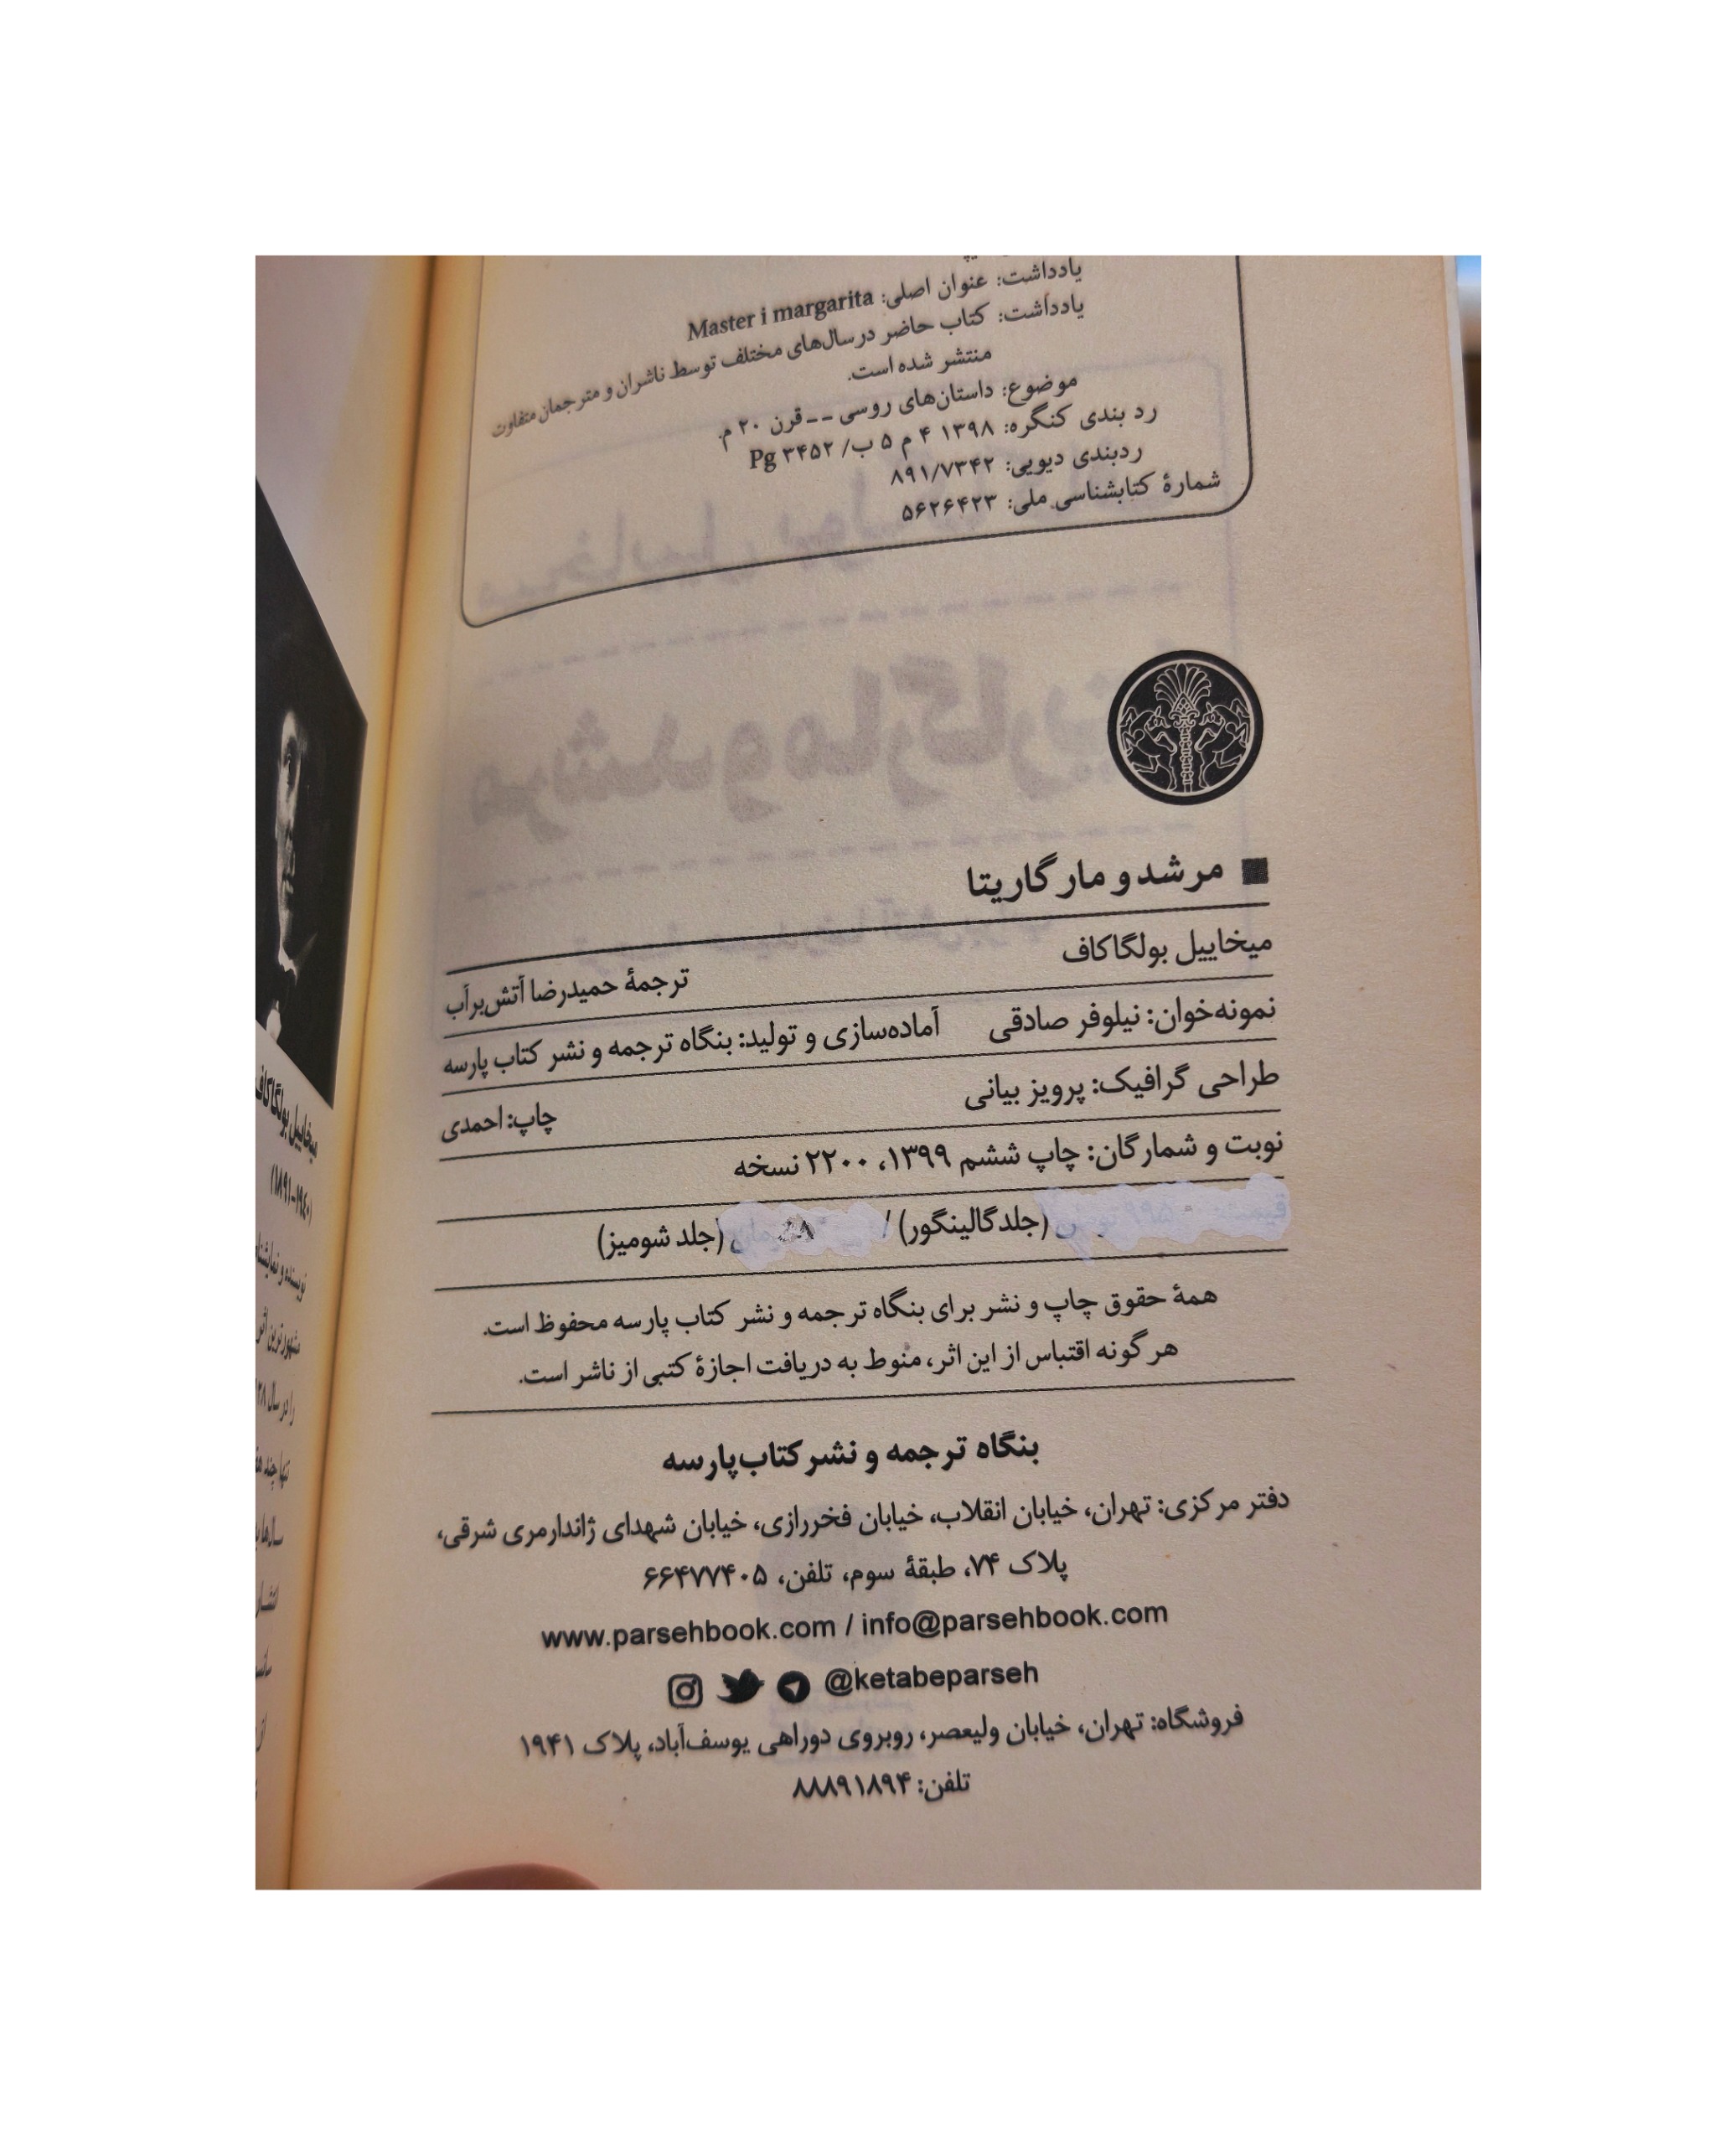 یادداشت: عنوان اصلی: Master i margarita
یادداشت: کتاب حاضر در سال‌های مختلف توسط ناشران و مترجمان متفاوت
منتشر شده است.
موضوع: داستان‌های روسی -- قرن ۲۰ م.
رد بندی کنگره: ۱۳۹۸ ۴ م ۵ ب/ Pg ۳۴۵۲
ردبندی دیویی: ۸۹۱/۷۳۴۲
شمارهٔ کتابشناسی ملی: ۵۶۲۶۴۲۳
مرشد و مارگاریتا
میخاییل بولگاکاف
ترجمهٔ حمیدرضا آتش‌برآب
نمونه‌خوان: نیلوفر صادقی آماده‌سازی و تولید: بنگاه ترجمه و نشر کتاب پارسه
طراحی گرافیک: پرویز بیانی
چاپ: احمدی
نوبت و شمارگان: چاپ ششم ۱۳۹۹، ۲۲۰۰ نسخه
(جلدگالینگور) / (جلد شومیز)
همهٔ حقوق چاپ و نشر برای بنگاه ترجمه و نشر کتاب پارسه محفوظ است.
هرگونه اقتباس از این اثر، منوط به دریافت اجازهٔ کتبی از ناشر است.
بنگاه ترجمه و نشر کتاب‌پارسه
دفتر مرکزی: تهران، خیابان انقلاب، خیابان فخررازی، خیابان شهدای ژاندارمری شرقی،
پلاک ۷۴، طبقهٔ سوم، تلفن، ۶۶۴۷۷۴۰۵
www.parsehbook.com / info@parsehbook.com
@ketabeparseh
فروشگاه: تهران، خیابان ولیعصر، روبروی دوراهی یوسف‌آباد، پلاک ۱۹۴۱
تلفن: ۸۸۸۹۱۸۹۴
میخاییل بولگاکاف
(۱۸۹۱-۱۹۴۰)